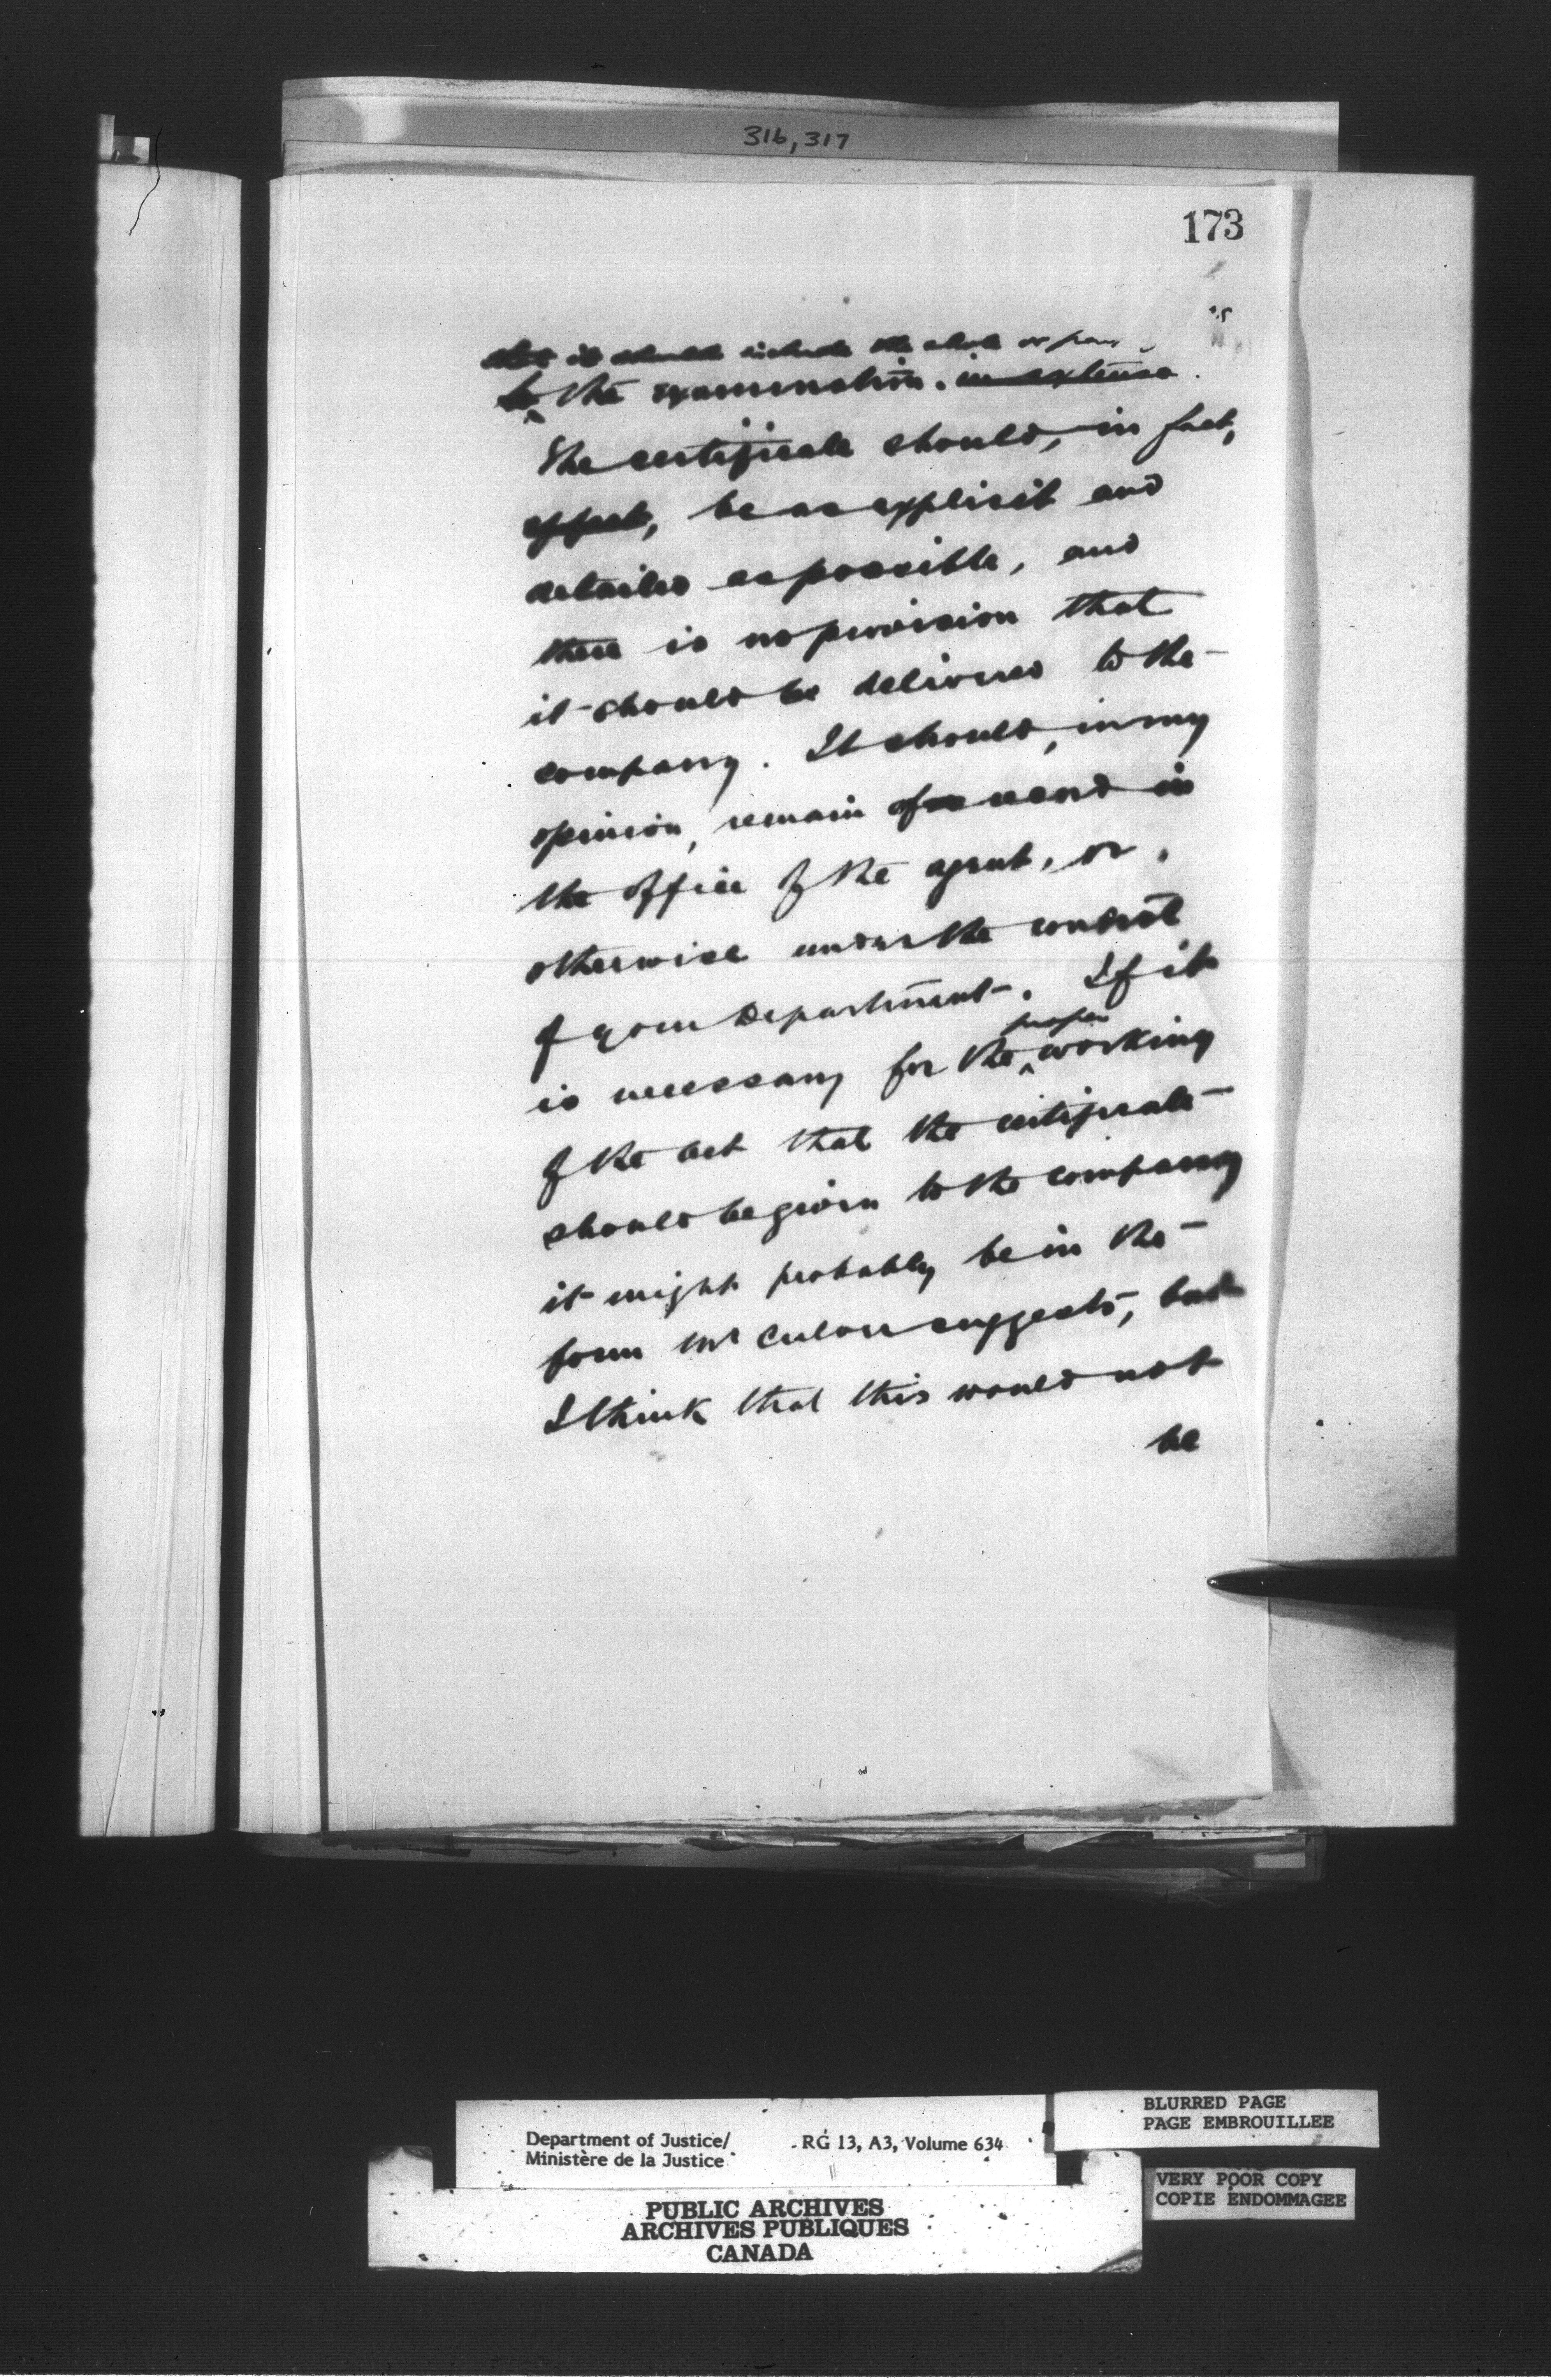 316,317
173
it should include the whole or
to the examination. in extenso.
The certificate should, in fact,
effect, be as explicit and
detailed as possible, and
there is no provision that
it should be delivered to the
company. It should, in my
opinion, remain of record in
the office of the agent, or,
otherwise under the control
of your Department. If it
proper
is necessary for the working
of the act that the certificate
should be given to the company
it might probably be in the
form Mr suggests, but
I think that this would not
be
Department of Justice/ RG 13, A3, Volume 634
Ministère de la Justice
BLURRED PAGE
PAGE EMBROUILLEE
VERY POOR COPY
COPIE ENDOMMAGEE
PUBLIC ARCHIVES
ARCHIVES PUBLIQUES
CANADA